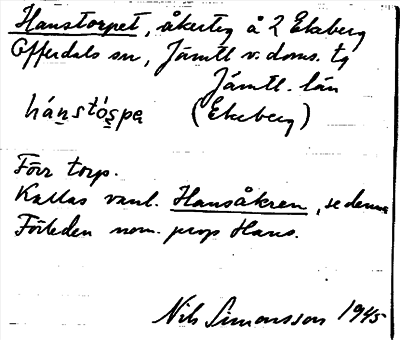 Hanstorpet, åkerteg å 2 Ekeberg
Offerdals sn, Jämtl v. doms. tg
Jämtl. län
hánstóspa (Ekeberg)
Förr torp.
Kallas vanl. Hansåkren, se denna
Förleden nom. prop Hans.
Nils Simonsson 1945